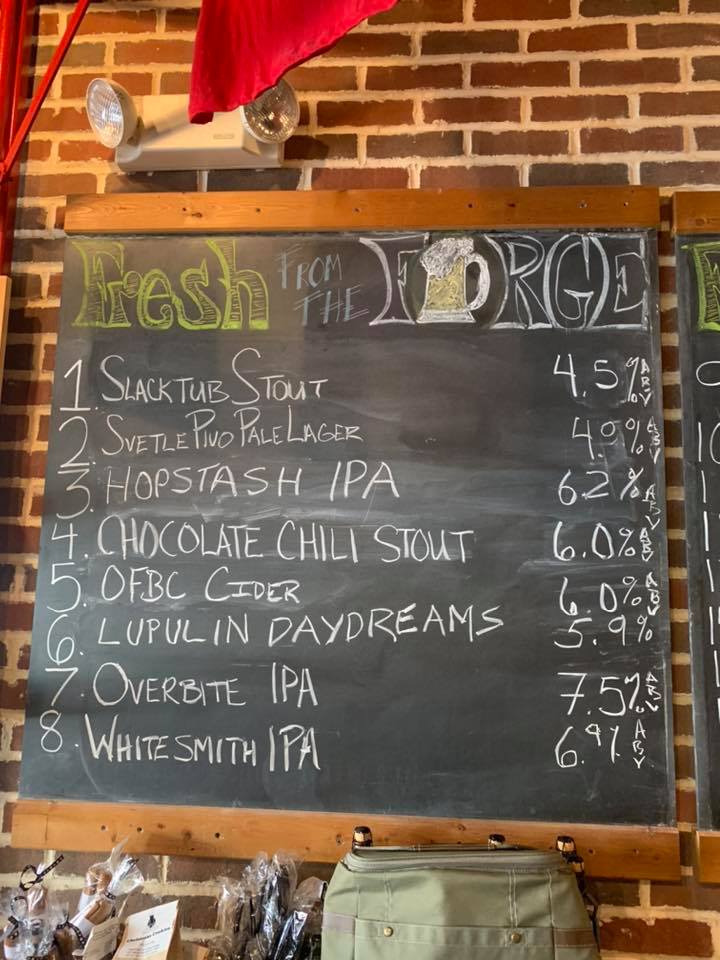 Fresh FROM THE FORGE
1. SLACKTUB STOUT 4.5% ABV
2. SVETLE PIVO PALE LAGER 4.9% ABV
3. HOPSTASH IPA 6.2% ABV
4. CHOCOLATE CHILI STOUT 6.0% ABV
5. OFBC CIDER 6.0% ABV
6. LUPULIN DAYDREAMS 5.9%
7. OVERBITE IPA 7.5% ABV
8. WHITESMITH IPA 6.9% ABV